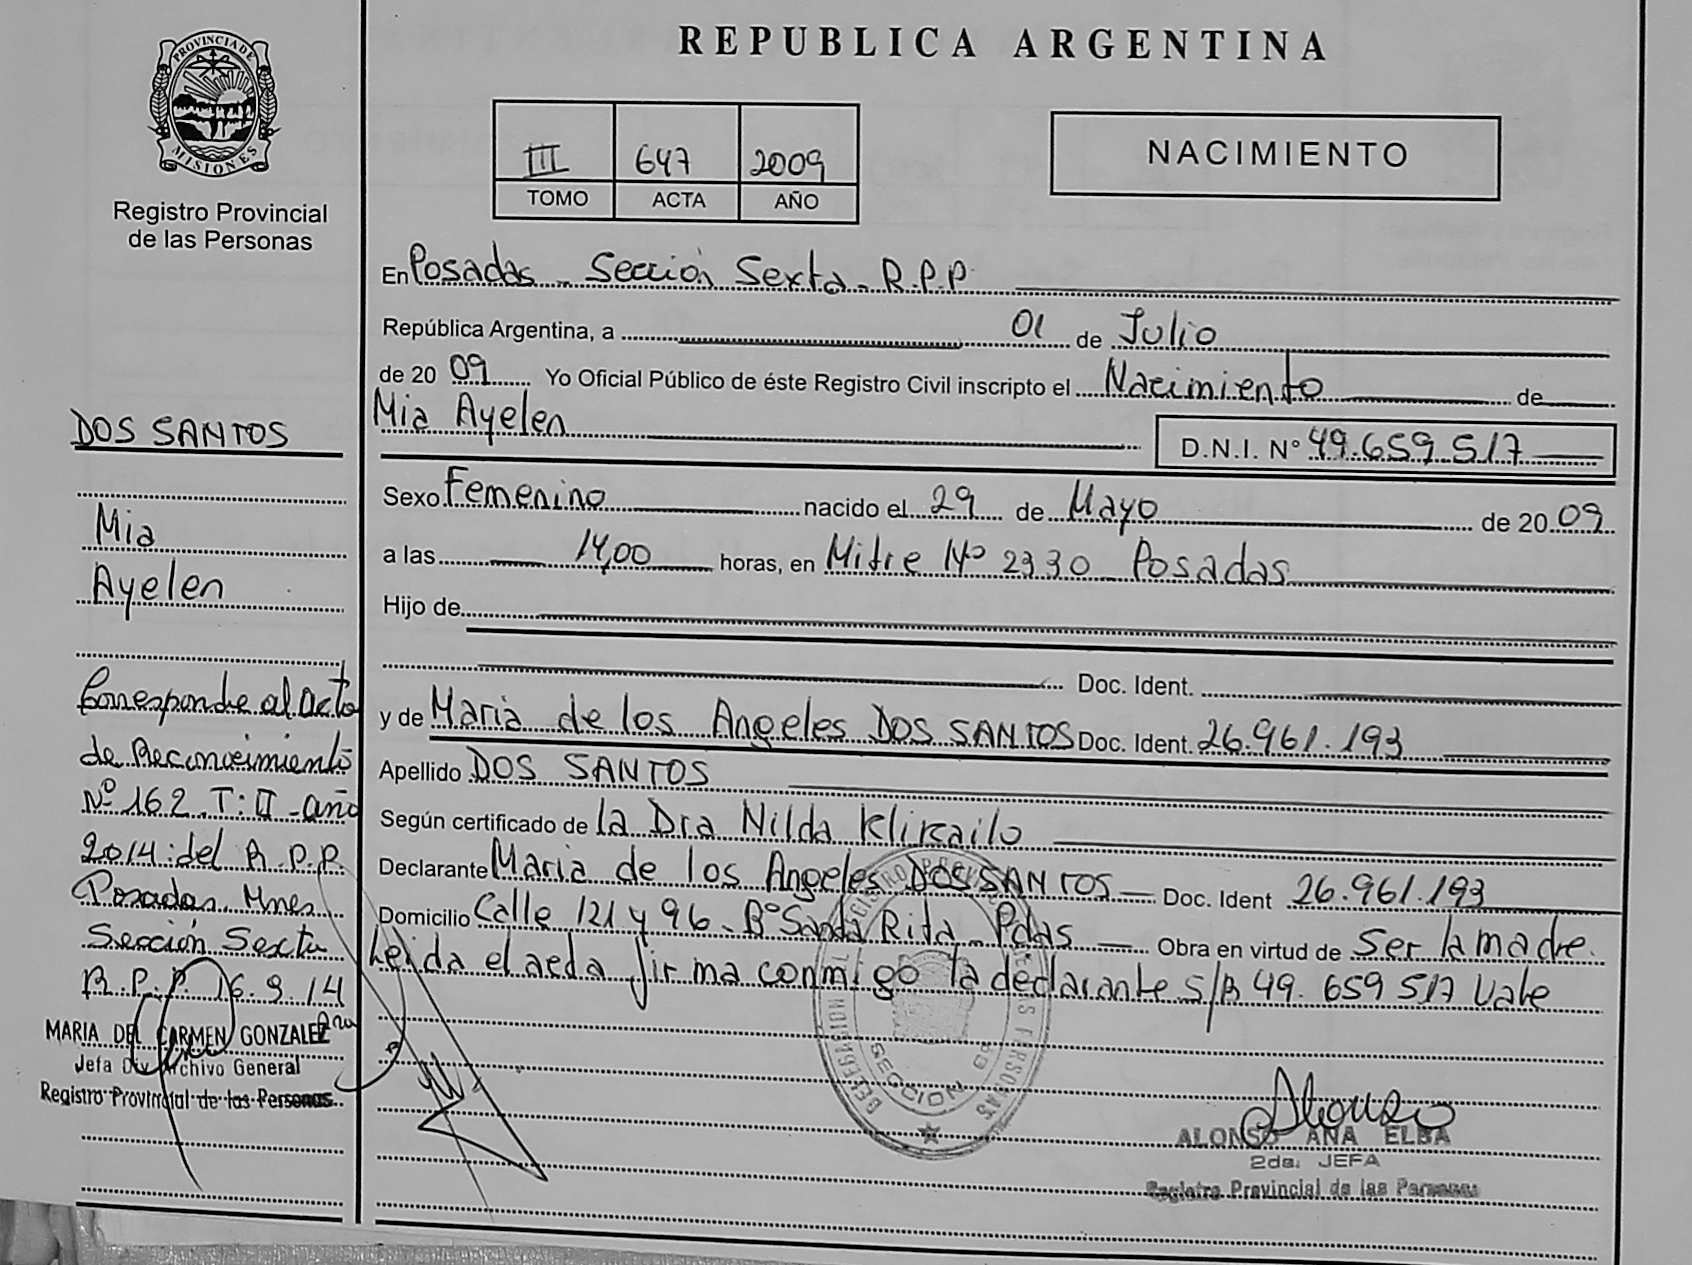 REPUBLICA ARGENTINA
PROVINCIA DE
MISIONES
Registro Provincial
de las Personas
III 647 2009
TOMO ACTA AÑO
NACIMIENTO
En Posadas - Sección Sexta - R.P.P
República Argentina, a 01 de Julio
de 2009 Yo Oficial Público de éste Registro Civil inscripto el Nacimiento de
Mia Ayelen
D.N.I. Nº 49.659.517
Sexo Femenino nacido el 29 de Mayo de 2009
a las 14,00 horas, en Mitre Nº 2330 Posadas
Hijo de
Doc. Ident.
y de Maria de los Angeles DOS SANTOS Doc. Ident. 26.961.193
Apellido DOS SANTOS
Según certificado de la Dra Nilda Klikailo
Declarante Maria de los Angeles DOS SANTOS Doc. Ident 26.961.193
Domicilio Calle 121 y 96 - Bº Santa Rita - Pdas Obra en virtud de Ser la madre.
Leida el acta firma conmigo la declarante S/B 49.659517 Vale
DOS SANTOS
Mia
Ayelen
Corresponde al acta
de Reconocimiento
Nº 162 T: II - año
2014 del R.P.P.
Posadas Mnes
Sección Sexta
R.P.P. 16.9.14
MARIA DEL CARMEN GONZALEZ
Jefa Div Archivo General
Registro Provincial de las Personas
SECCION 6a
Alonso
ALONSO ANA ELBA
2da. JEFA
Registro Provincial de las Personas